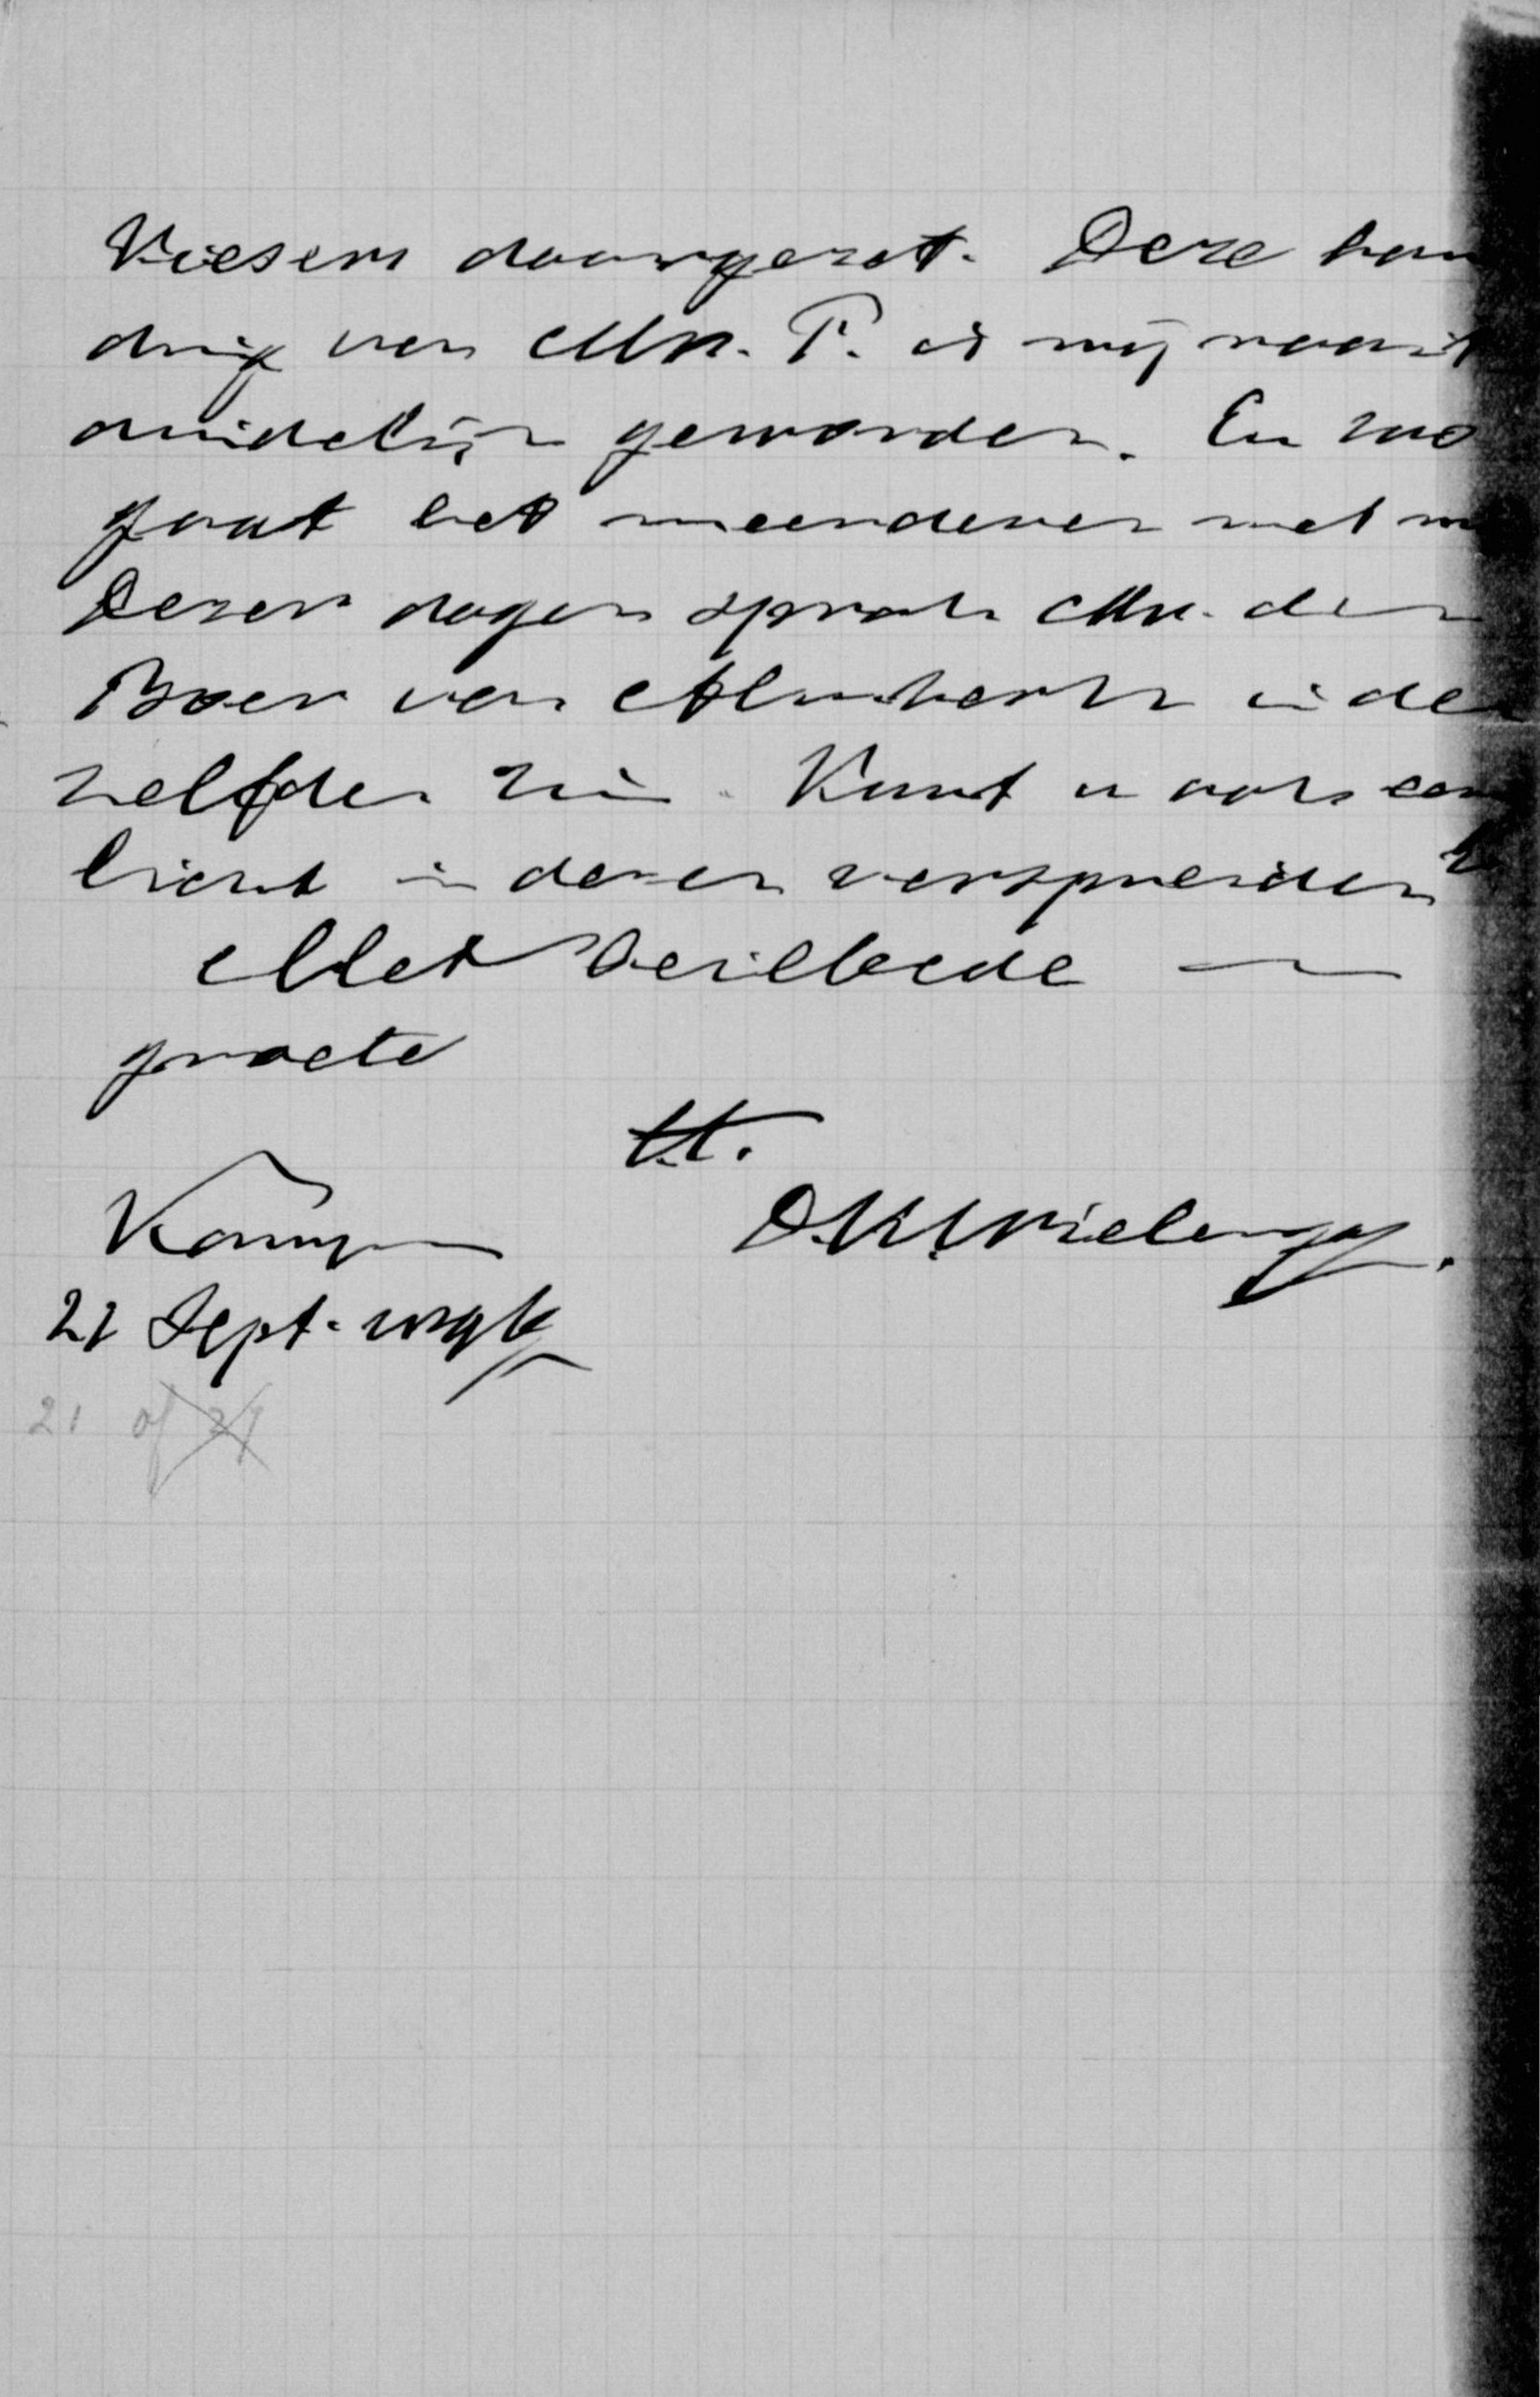 Kiesers doorgezet. Deze han
dnig van Mr. P. is mij nooit
duidelijk geworden. En zoo
gaat het meerderen met m
Dezer dagen sprak Mr. de
Boer van in de
zelfden zin. Kunt u ook een
licht in dezen verspreiden?
Met heilbede en
groete
t.t.
D. K. Wielenga.
Kampen
21 Sept.
21 of 24